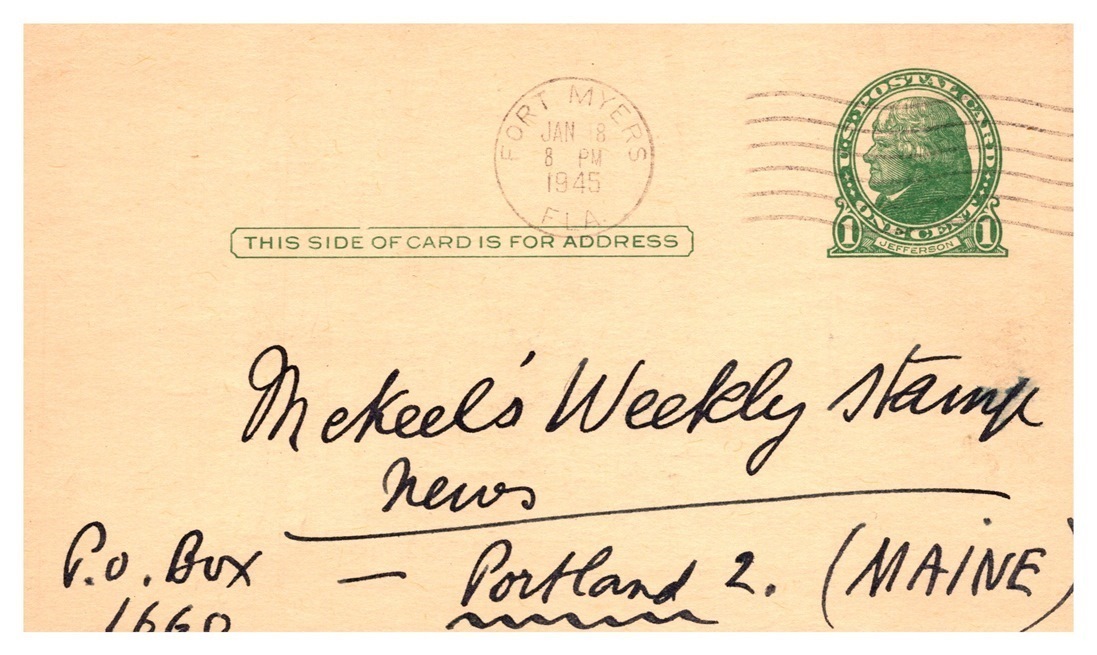 FORT MYERS
JAN 18
8 PM
1945
FLA.
U.S. POSTAL CARD
ONE CENT
1 JEFFERSON 1
THIS SIDE OF CARD IS FOR ADDRESS
Mekeel's Weekly Stamp
News
P.O. Box — Portland 2. (MAINE)
1660